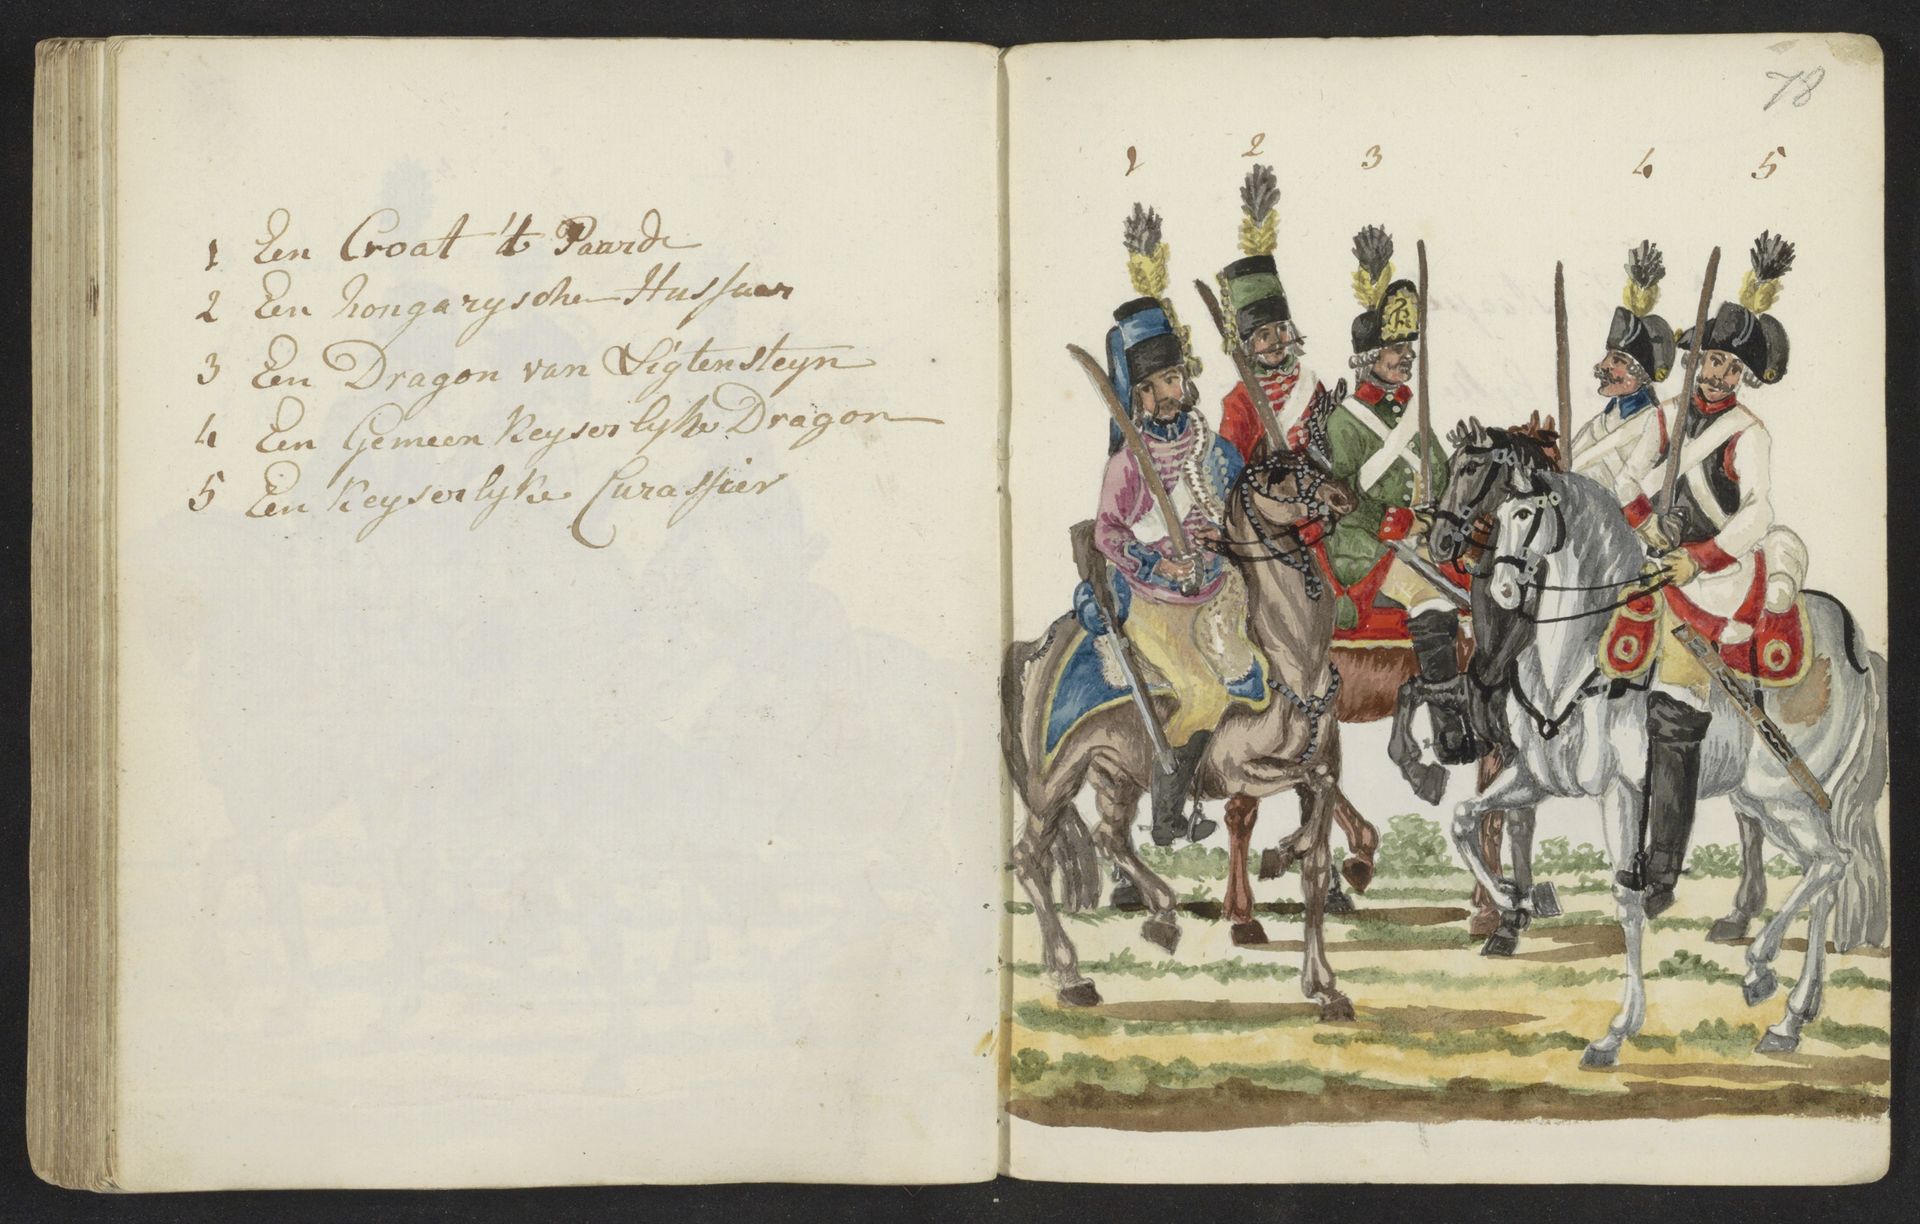 1 Een Croat 't Paard
2 Een hongarysche Hussaar
3 Een Dragon van Ligtensteyn
4 Een Gemeen Keyserlyke Dragon
5 Een Keyserlyke Curassier
78
1 2 3 4 5